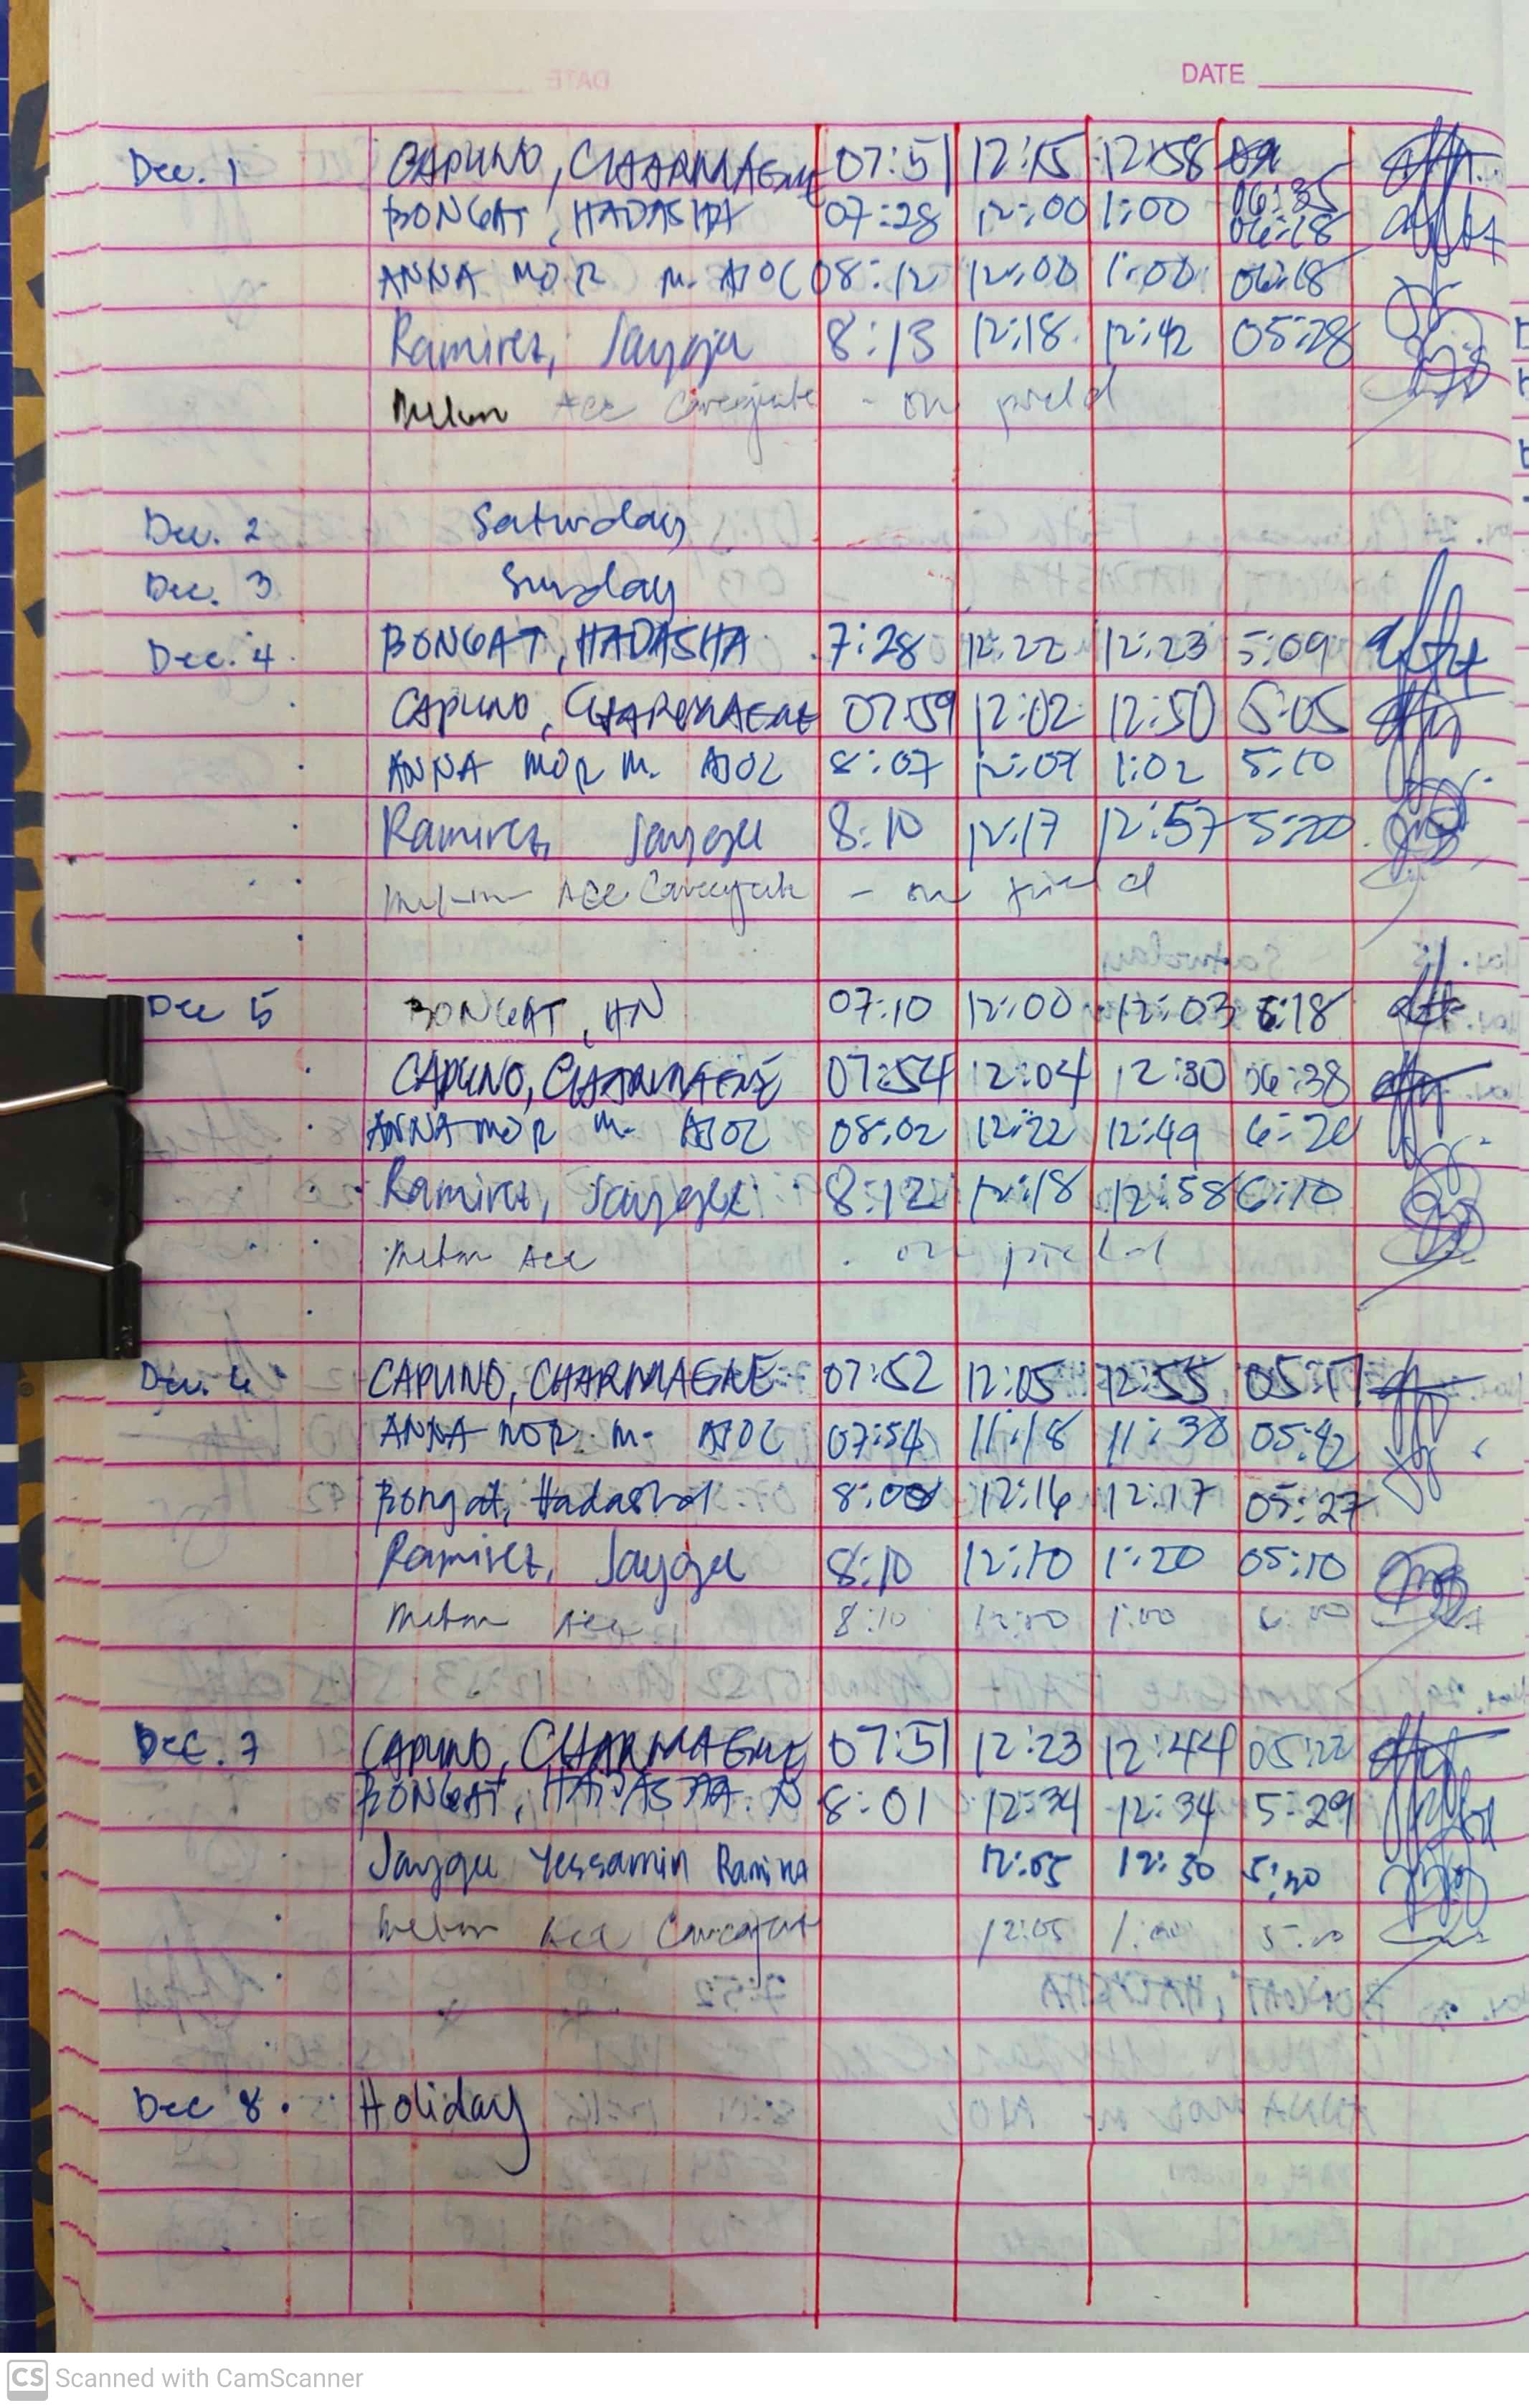 DATE
Dec. 1 CAPUNO, CHARMAGNE 07:51 12:15 12:58 06:35
BONGAT, HADASHA 07:28 12:00 1:00 06:18
ANNA MOR M. AJOC 08:12 12:00 1:00 06:18
Ramirez, Jaygee 8:13 12:18 12:42 05:28
Ace - on field
Dec. 2 Saturday
Dec. 3 Sunday
Dec. 4 BONGAT, HADASHA 7:28 12:22 12:23 5:09
CAPUNO, CHARMAGNE 07:59 12:02 12:50 5:05
ANNA MOR M. AJOC 8:07 12:07 1:02 5:10
Ramirez, Jaygee 8:10 12:17 12:57 5:20
Ace - on field
Dec 5 BONGAT, HN 07:10 12:00 12:03 6:18
CAPUNO, CHARMAGNE 07:54 12:04 12:30 06:38
ANNA MOR M. AJOC 08:02 12:22 12:49 6:20
Ramirez, Jaygee 8:12 12:18 12:58 6:10
Ace on field
Dec. 6 CAPUNO, CHARMAGNE 07:52 12:05 12:55 05:17
ANNA MOR M. AJOC 07:54 11:18 11:30 05:42
Bongat, Hadasha 8:00 12:16 12:17 05:27
Ramirez, Jaygee 8:10 12:10 1:20 05:10
Ace 8:10 12:00 1:00
Dec. 7 CAPUNO, CHARMAGNE 07:51 12:23 12:44 05:22
BONGAT, HADASHA N 8:01 12:34 12:34 5:29
Jaygee Yessamin Ramirez 12:05 12:30 5:10
Ace 12:05 1:00
Dec 8. Holiday
CS Scanned with CamScanner